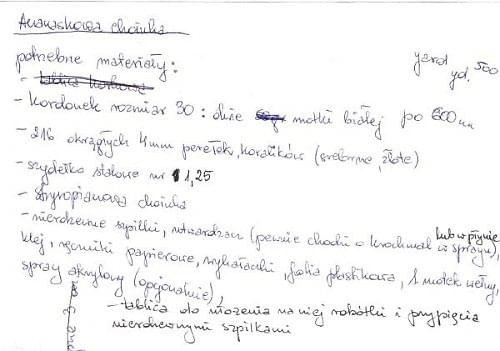 Ananaskowa choinka
potrzebne materiały:
- tablica korkowa
yard
yd. 500
- kordonek rozmiar 30: duże motki białej po 600 m
- 216 okrągłych 4mm perełek, koralików (srebrne, złote)
- szydełko stalowe nr 1,25
- styropianowa choinka
- nierdzewne szpilki, utwardzacz (pewnie chodzi o krochmal w sprayu),
lub w płynie
klej, ręczniki papierowe, wykałaczki, folia plastikowa, 1 motek wełny,
spray akrylowy (opcjonalnie),
- tablica do ułożenia na niej robótki i przypięcia
nierdzewnymi szpilkami